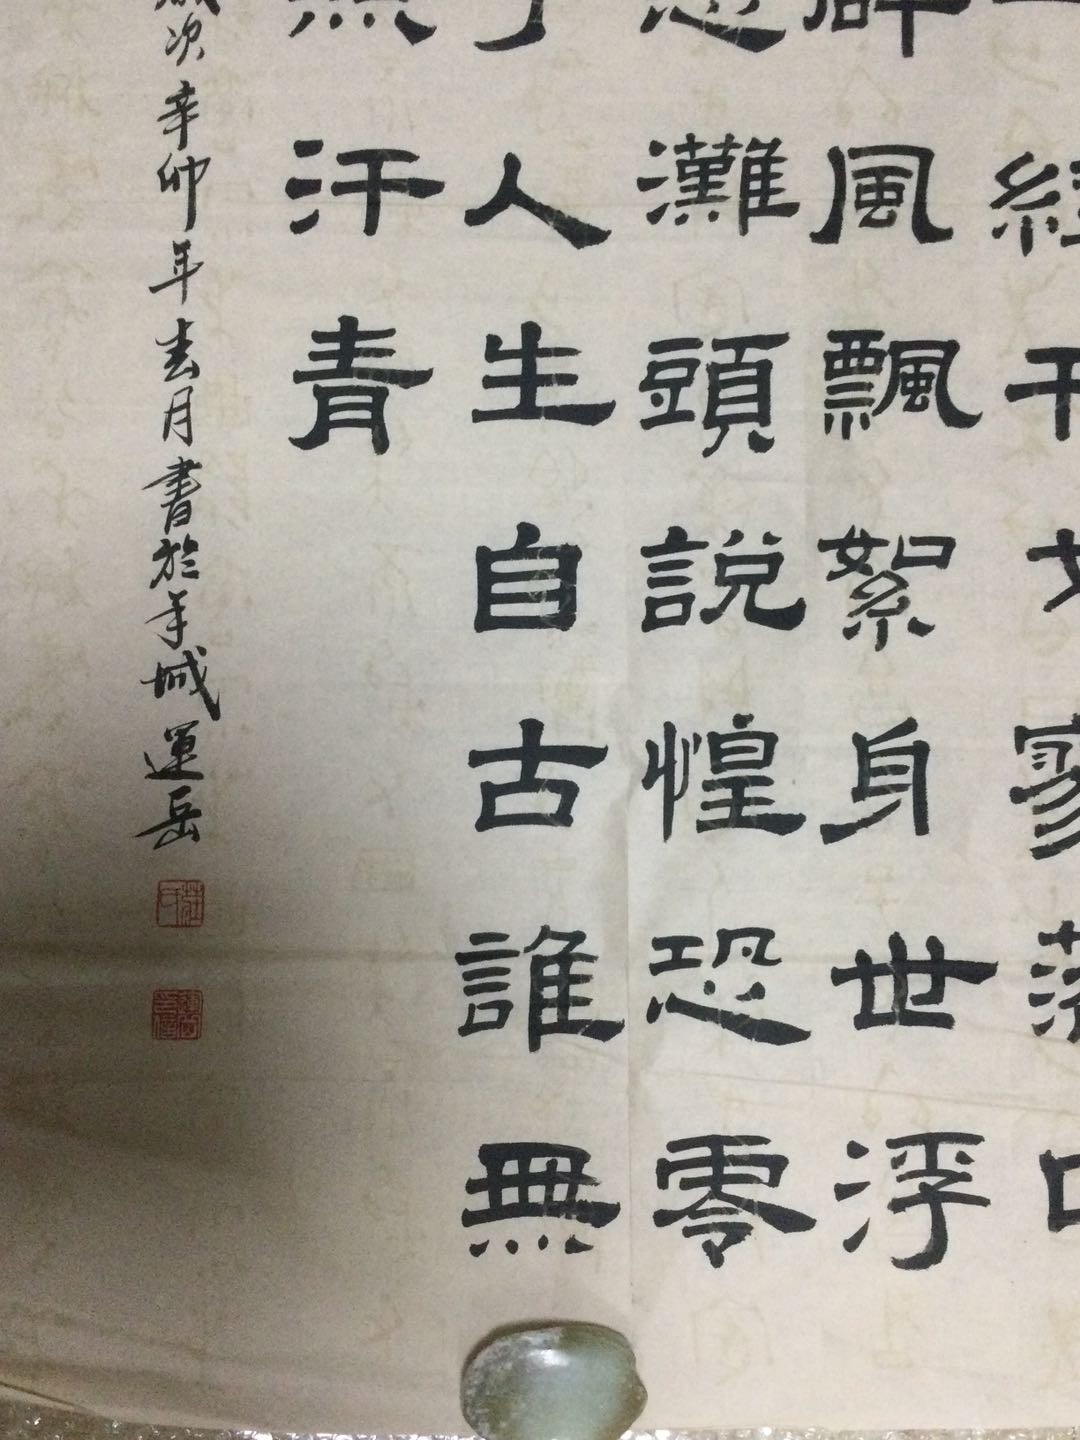 經干戈寥落
碎風飄絮身世浮
恐灘頭說惶恐零
丁人生自古誰無
照汗青
歲次辛卯年春月書於羊城運岳